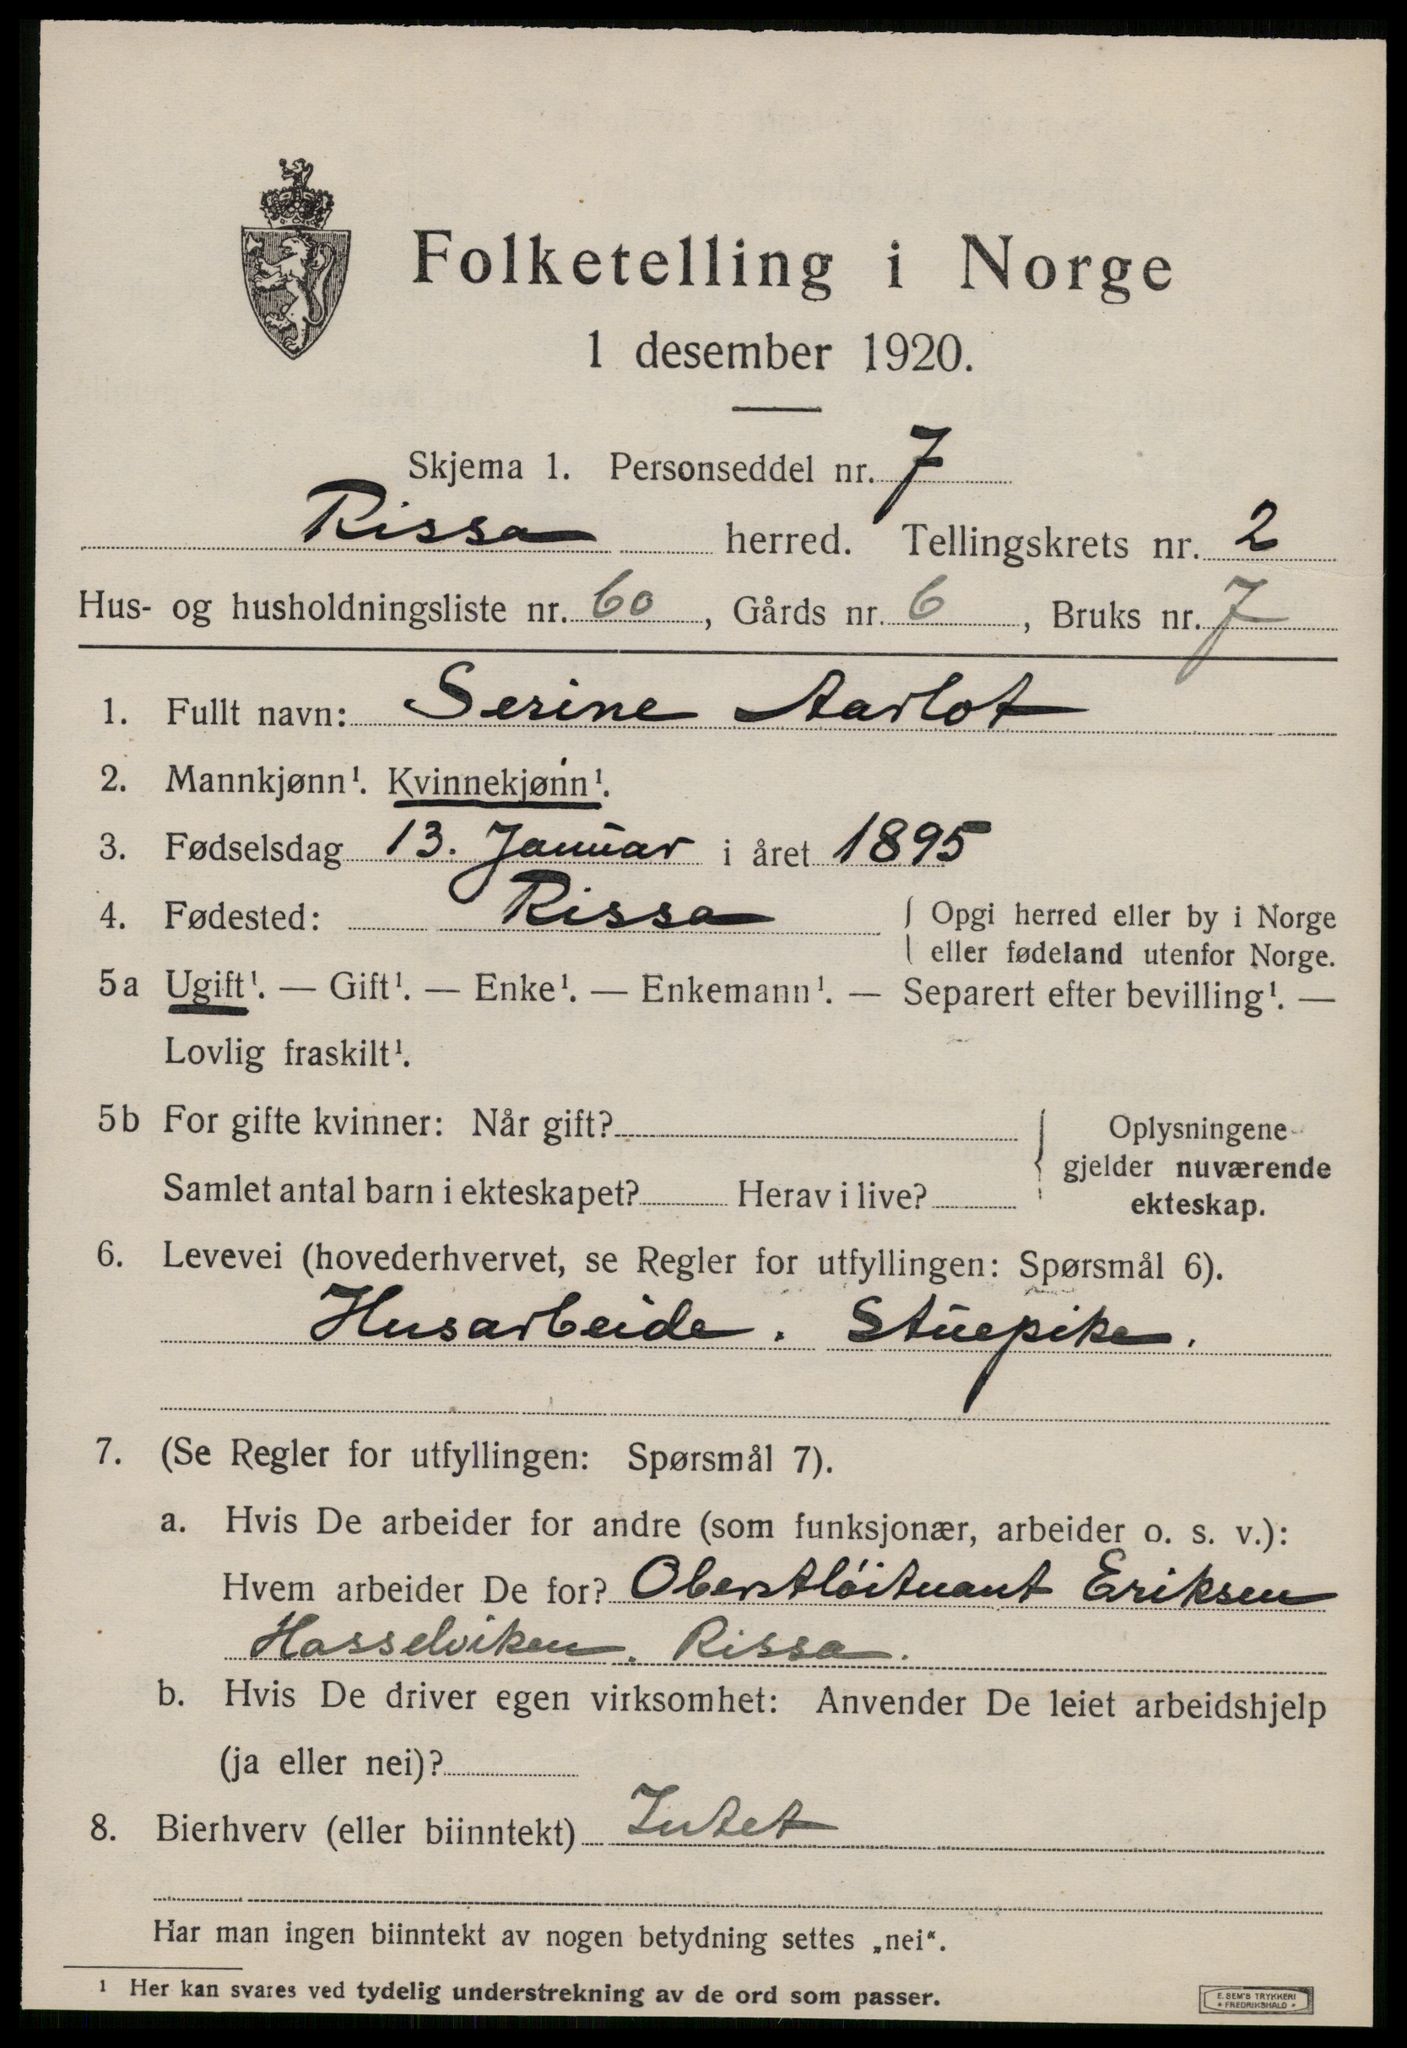 Folketelling i Norge
1 desember 1920.
Skjema 1. Personseddel nr. 7
Rissa herred. Tellingskrets nr. 2
Hus- og husholdningsliste nr. 60, Gårds nr. 6, Bruks nr. 7
1. Fullt navn: Serine Aarlot
2. Mannkjønn¹. Kvinnekjønn¹.
3. Fødselsdag 13. Januar i året 1895
4. Fødested: Rissa { Opgi herred eller by i Norge
eller fødeland utenfor Norge.
5a Ugift¹. — Gift¹. — Enke¹. — Enkemann¹. — Separert efter bevilling¹. —
Lovlig fraskilt¹.
5b For gifte kvinner: Når gift?
Samlet antal barn i ekteskapet? Herav i live?
Oplysningene
gjelder nuværende
ekteskap.
6. Levevei (hovederhvervet, se Regler for utfyllingen: Spørsmål 6).
Husarbeide. Stuepike.
7. (Se Regler for utfyllingen: Spørsmål 7).
a. Hvis De arbeider for andre (som funksjonær, arbeider o. s. v.):
Hvem arbeider De for? Oberstløitnant Eriksen
Hasselviken. Rissa.
b. Hvis De driver egen virksomhet: Anvender De leiet arbeidshjelp
(ja eller nei)?
8. Bierhverv (eller biinntekt) Intet
Har man ingen biinntekt av nogen betydning settes „nei“.
¹ Her kan svares ved tydelig understrekning av de ord som passer.
E. SEM'S TRYKKERI
• FREDRIKSHALD •